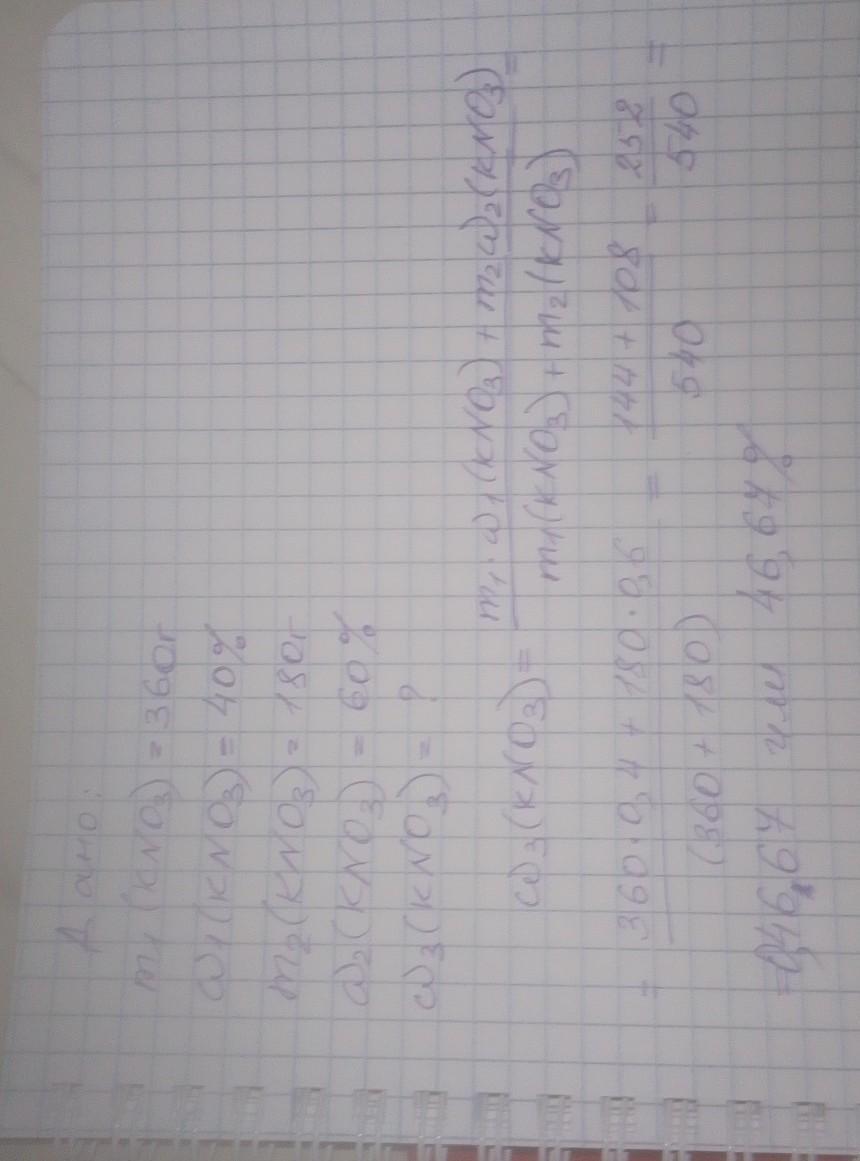 Дано:
m1 (KNO3) = 360г
ω1 (KNO3) = 40%
m2 (KNO3) = 180г
ω2 (KNO3) = 60%
ω3 (KNO3) = ?
ω3 (KNO3) = m1 · ω1 (KNO3) + m2 ω2 (KNO3) =
m1 (KNO3) + m2 (KNO3)
= 360 · 0,4 + 180 · 0,6 = 144 + 108 = 252 =
(360 + 180) 540 540
= 0,4667 или 46,67%